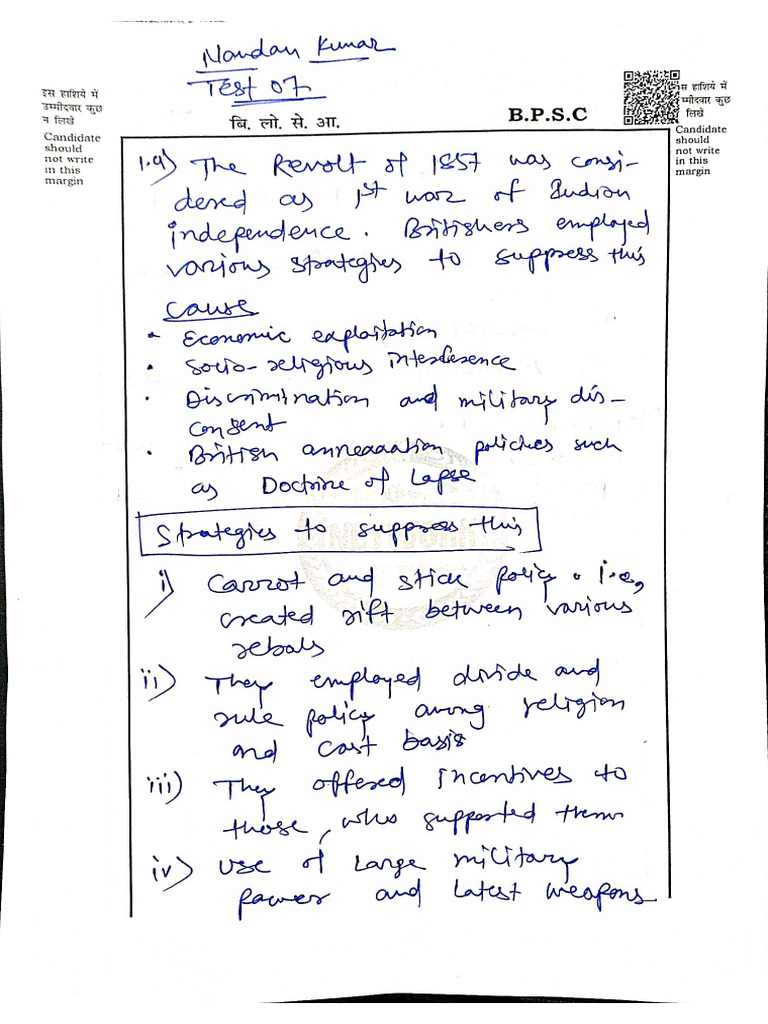 Nandan Kumar
Test 07
इस हाशिये में
उम्मीदवार कुछ
न लिखें
Candidate
should
not write
in this
margin
बि. लो. से. आ.
B.P.S.C
स हाशिये में
म्मीदवार कुछ
लिखें
Candidate
should not
write in this
margin
1.a) The Revolt of 1857 was consi-
dered as 1st war of Indian
independence. Britishers employed
various strategies to suppress this
Cause
• Economic exploitation
• Socio-religious interference
• Discrimination and military dis-
consent
• British annexation policies such
as Doctrine of Lapse
Strategies to suppress this
i) Carrot and stick policy. i.e,
created rift between various
rebals
ii) They employed divide and
rule policy among religion
and cast basis
iii) They offered incentives to
those, who supported them
iv) Use of large military
power and latest weapons